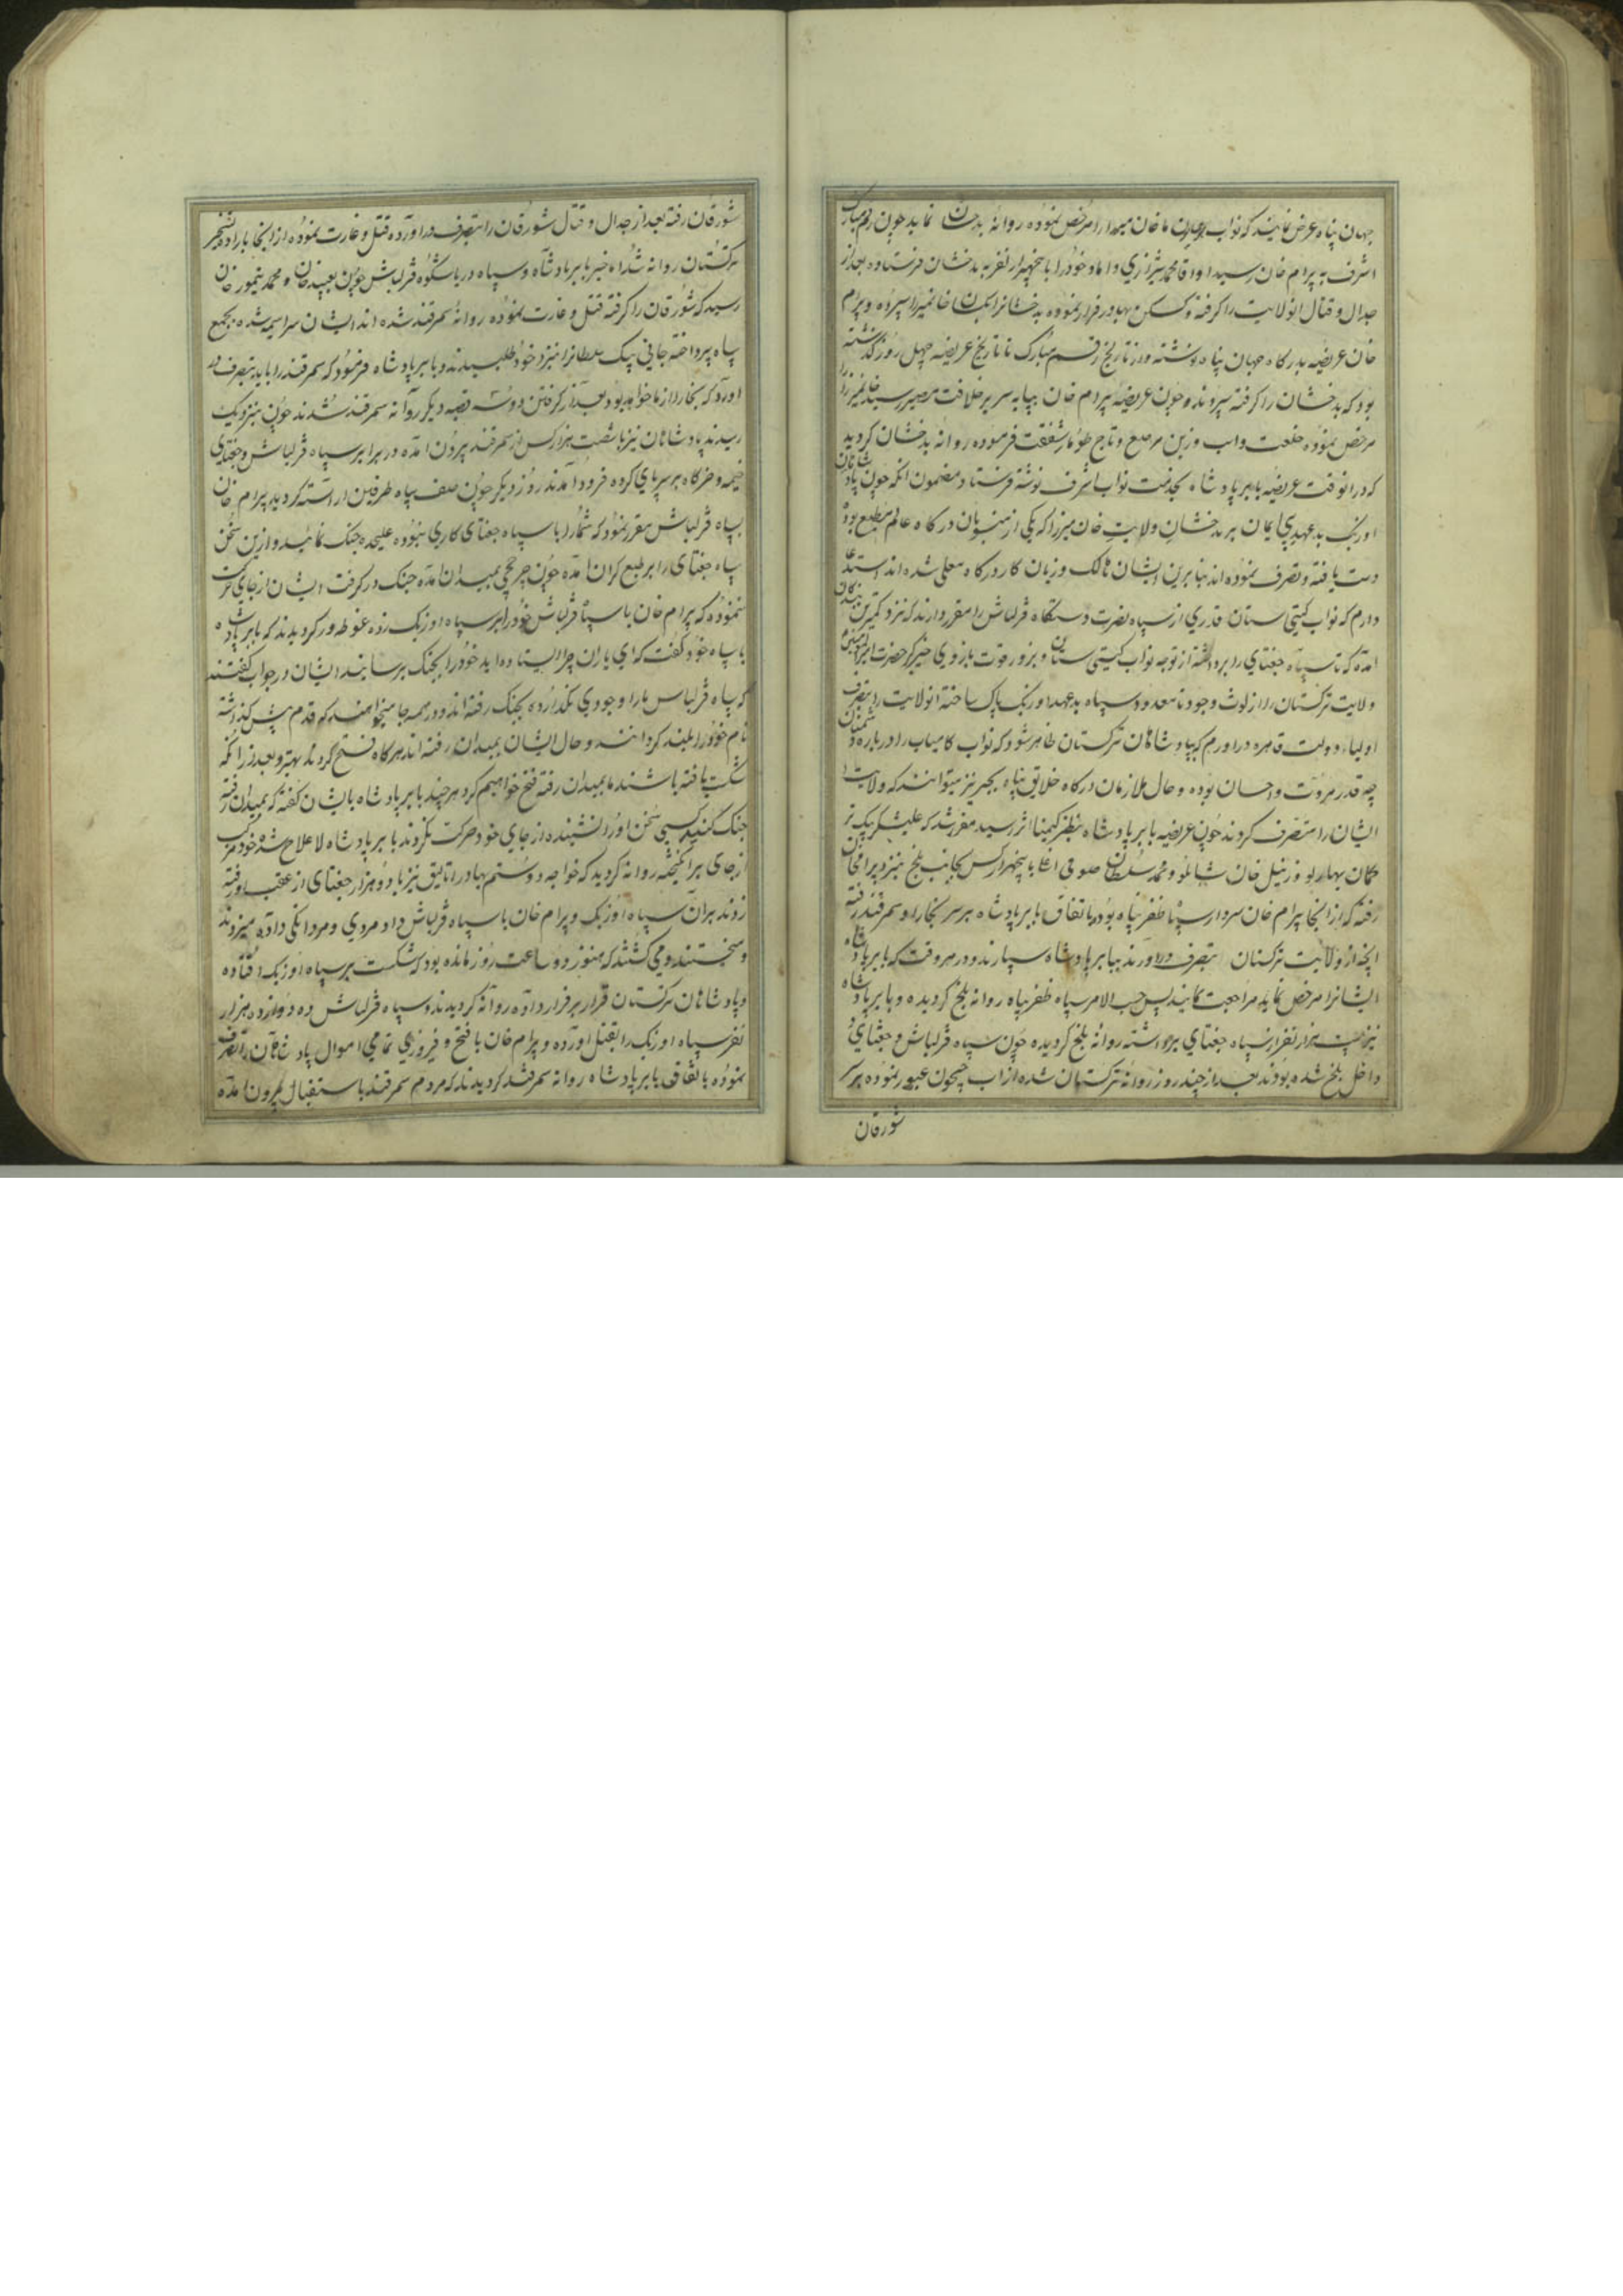 جهان پناه عرض نمایند که نواب خان میرزا را مرخص نموده روانهٔ بدخشان نماید چون رقم مبارک
اشرف به پرام خان رسید او اقا محمد شیرازی داماد خود را با پنجهزار نفر به بدخشان فرستاده بعد از
جدال و قتال انولایت را کرفته بهادر فرار نموده بدخشانرا خانمیرزا سپرده و پرام
خان عریضه بدرکاه جهان پناه نوشته و از تاریخ رقم مبارک تا تاریخ عریضه چهل روز کذشته
بود که بدخشان را کرفته سپردند و چون عریضهٔ پرام خان بپایه سریر خلافت مصیر رسید خانمیرزا را
مرخص نموده خلعت و اسب و زین مرصع و تاج طومار شفقت فرموده روانه بدخشان کردید
که در انوقت عریضه بابر پادشاه بخدمت نواب اشرف نوشته فرستاد مضمون انکه چون پادشاهان
اوزبک بدعهدی ایمان بر بدخشان ولایت خان میرزا که یکی از منسوبان درکاه عالم مطیع بود
دست یافته و تصرف نموده اند بنابرین ایشان مالک و زیان کار درکاه معلی شده اند استدعا
دارم که نواب کیتی ستان قدری از سپاه نصرت دستکاه قزلباش را مقرر دارند که نزد کمترین بندکان
امده که تا سپاه جغتای را برداشته از توجه نواب کیتی ستان و بزور قوت بازوی خیر حضرت امیرالمومنین
ولایت ترکستان را از لوث وجود نامعدود سپاه بدعهد اوزبک پاک ساخته انولایت را بتصرف
اولیاء دولت قاهره دراورم که بپادشاهان ترکستان ظاهر شود که نواب کامیاب را درباره دشمنان
چه قدر مروت و احسان بوده و حال ملازمان درکاه خلایق پناه بجبر نیز میتوانند که ولایت
ایشان را متصرف کردند چون عریضه بابر پادشاه بنظر کیمیا اثر رسید مقرر شد که علیشکر بیک تر
کمان بهارلو و زنیل خان شاملو و محمد سلطان صوفی اغلی با پنجهزار کس بجانب بلخ نیزد پرام خان
رفته که از انجا پرام خان سردار سپاه ظفر پناه بوده باتفاق بابر پادشاه بر سر بخارا و سمرقند رفته
انچه از ولایت ترکستان بتصرف دراورند ببابر پادشاه سپارند و در هر وقت که بابر پادشاه
ایشانرا مرخص نماید مراجعت نمایند پس حسب الامر سپاه ظفر پناه روانه بلخ کردیده و بابر پادشاه
نیز هزار نفر از سپاه جغتای برداشته روانه بلخ کردیده چون سپاه قزلباش و جغتای
داخل بلخ شده بودند بعد از چند روز روانه ترکستان شده از اب جیحون عبور نموده بر سر
شورقان
شورقان رفته بعد از جدال و قتال شورقان را بتصرف دراورده قتل و غارت نموده از انجا باراده تسخیر
ترکستان روانه شد اه خبر بابر پادشاه و سپاه دریا شکوه قزلباش چون بعبید خان و محمد تیمور خان
رسید که شورقان را کرفته قتل و غارت نموده روانهٔ سمرقند شده اند ایشان سراسیمه شده بجمع
سپاه پرداخته جانی بیک سلطانرا نیز نزد خود طلبیدند و بابر پادشاه فرمود که سمرقند را باید بتصرف در
اورد که بخارا از ما خواهد بود بعد از کرفتن دو سه قصبه دیکر روانه سمرقند شدند چون بنزدیک
رسیدند پادشاهان نیز با شصت هزار کس از سمرقند پرون امده در برابر سپاه قزلباش و جغتای
خیمه و خرکاه بر سر پای کرده فرود امدند روز دیکر چون صف سپاه طرفین اراسته کردید پرام خان
بسپاه قزلباش مقرر نمود که شما را با سپاه جغتای کاری نبوده علیحده جنک نمائید و ازین سخن
سپاه جغتای را بر طبع کران امده چون چرخچی بمیدان امده جنک درکرفت ایشان از جای حرکت
ننموده که پرام خان با سپاه قزلباش خود را بر سپاه اوزبک زده غوطه ور کردیدند که بابر پادشاه
با سپاه خود کفت که ای یاران چرا ایستاده اید خود را بجنک برسانید ایشان در جواب کفتند
که سپاه قزلباش ما را وجودی نکذارده بجنک رفته اند و در همه جا میخواهند که قدم پیش کذاشته
نام خود را بلند کردانند و حال ایشان بمیدان رفته اند هرکاه فتح کردند بهتر و بعد از انکه
شکست یافته باشند ما بمیدان رفته فتح خواهیم کرد هر چند بابر پادشاه بایشان کفته که بمیدان رفته
جنک کنید کسی سخن او را نشنیده از جای خود حرکت نکردند بابر پادشاه لاعلاج شده خود مرکب
از جای برانکیخته روانه کردید که خواجه دوستم بهادر اتالیق نیز با دو هزار جغتای از عقب او رفته
زدند بران سپاه اوزبک و پرام خان با سپاه قزلباش داد مردی و مردانکی داده میزدند
و میخستند و می کشتند که هنوز دو ساعت روز مانده بود که شکست بر سپاه اوزبک افتاده
و پادشاهان ترکستان قرار بر فرار داده روانه کردیدند و سپاه قزلباش ده دوازده هزار
نفر سپاه اوزبک را بقتل اورده و پرام خان با فتح و فیروزی تمامی اموال پادشاهان را تصرف
نموده باتفاق بابر پادشاه روانه سمرقند کردیدند که مردم سمرقند باستقبال پرون امده